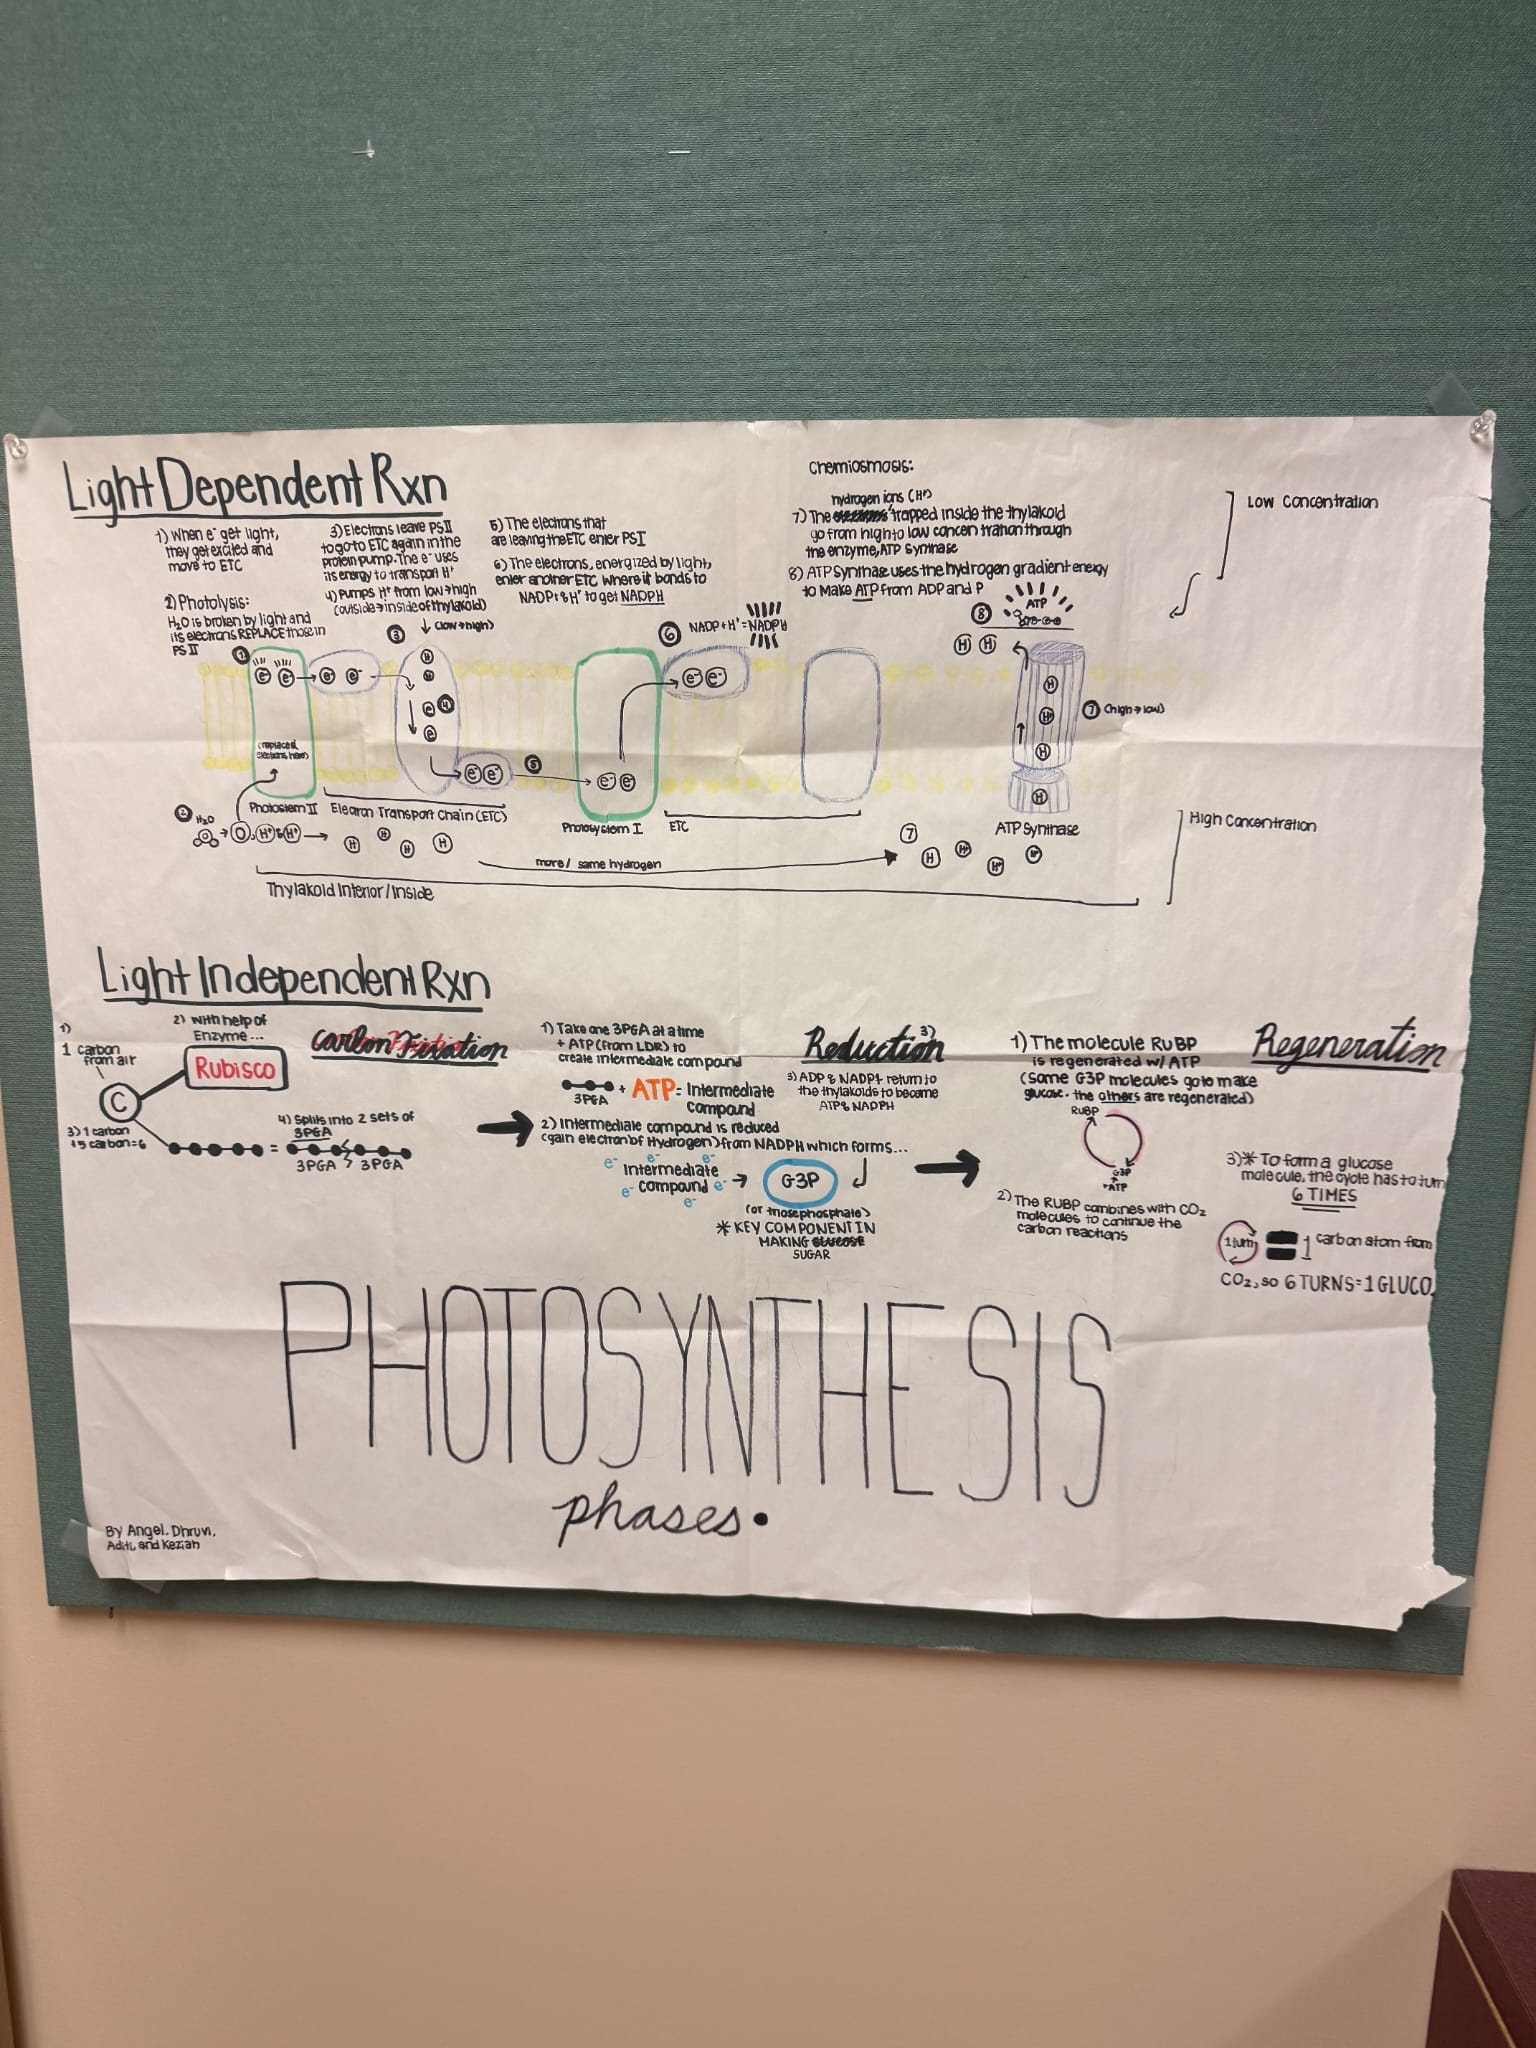 Light Dependent Rxn
1) When e⁻ get light,
they get excited and
move to ETC
2) Photolysis:
H₂O is broken by light and
its electrons REPLACE those in
PS II
3) Electrons leave PS II
to go to ETC again in the
protein pump. The e⁻ uses
its energy to transport H⁺
4) Pumps H⁺ from low → high
(outside → inside of thylakoid)
5) The electrons that
are leaving the ETC enter PS I
6) The electrons, energized by light,
enter another ETC where it bonds to
NADP+ & H⁺ to get NADPH
Chemiosmosis:
hydrogen ions (H⁺)
7) The trapped inside the thylakoid
go from high to low concentration through
the enzyme, ATP Synthase
8) ATP Synthase uses the hydrogen gradient energy
to Make ATP from ADP and P
Low Concentration
(low → high)
NADP + H⁺ = NADPH
ATP
1
3
6
8
e⁻ e⁻ e⁻ e⁻
H
H
e 4
e
e⁻ e⁻
5
e⁻ e⁻
e⁻ e⁻
H H
H
H⁺
H
H
7 (high → low)
(replaced
electrons here)
Photostem II
Electron Transport Chain (ETC)
Photosystem I
ETC
ATP Synthase
High Concentration
2 H₂O
O, H⁺ & H⁺
H H H H
more / same hydrogen
7
H H⁺ H⁺ H⁺
Thylakoid Interior / Inside
Light Independent Rxn
1)
1 carbon
from air
C
2) With help of
Enzyme...
Rubisco
3) 1 carbon
+5 carbon=6
=
Carbon Fixation
4) Splits into 2 sets of
3PGA
3PGA 3PGA
1) Take one 3PGA at a time
+ ATP (from LDR) to
create intermediate compound
3PGA + ATP = Intermediate
compound
2) Intermediate compound is reduced
(gain electron of Hydrogen) from NADPH which forms...
e⁻ e⁻ e⁻
Intermediate
e⁻ compound e⁻
e⁻
G3P
(or triosephosphate)
* KEY COMPONENT IN
MAKING GLUCOSE
SUGAR
Reduction
3)
3) ADP & NADP+ return to
the thylakoids to become
ATP & NADPH
1) The molecule RuBP
is regenerated w/ ATP
(some G3P molecules go to make
glucose. the others are regenerated)
RUBP
G3P
+ATP
2) The RUBP combines with CO₂
molecules to continue the
carbon reactions
Regeneration
3) * To form a glucose
molecule, the cycle has to turn
6 TIMES
1 turn = 1 carbon atom from
CO₂, so 6 TURNS = 1 GLUCO
PHOTOSYNTHESIS
phases.
By Angel, Dhruvi,
Aditi, and Keziah